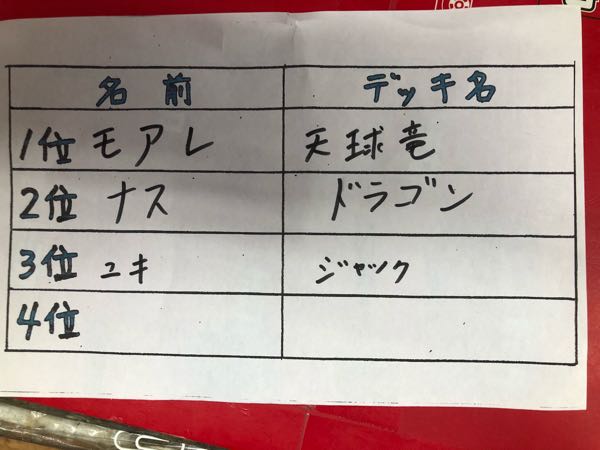 名前 デッキ名
1位 モアレ 天球竜
2位 ナス ドラゴン
3位 ユキ ジャック
4位